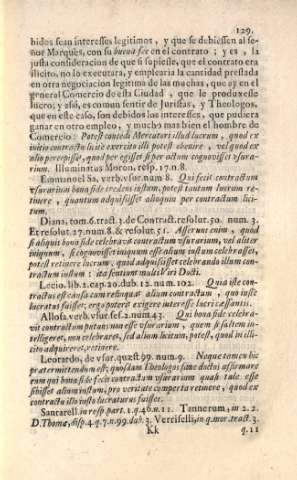 129.
bidos sean interesses legitimos, y que se debiessen al se-
ñor Marques, con su buena fee en el contrato; y es, la
justa consideracion de que si supiesse, que el contrato era
ilicito, no lo executara, y emplearia la cantidad prestada
en otra negociacion legitima de las muchas, que ay en el
general Comercio de esta Ciudad, que le produxesse
lucro; y assi, es comun sentir de Juristas, y Theologos,
que en este caso, son debidos los interesses, que pudiera
ganar en otro empleo, y mucho mas bien el hombre de
Comercio: Potest tamen di Mercatori illud lucrum, quod ex
initio contractu licitè exercito illi potest obvenire, vel quod ex
alio percepisset, quod peregisset si per actum cognovisset usu-
rarium. Illuminatus Moron, resp. 17. n. 8.
Emmanuel Sa, verb. usur. num. 8. Qui fecit contractum
usurarium bona fide credens iustum, potest tantum lucrum re-
tinere, quantum adquisiisset aliquin per contractum lici-
tum.
Diana, tom. 6. tract. 3. de Contract. resolut. 50. num. 3.
Et resolut. 27. num. 8. & resolut. 51. Asserunt enim, quod
si aliquis bona fide celebravit contractum usurarium, vel aliter
iniquum, si cognovisset iniquum esse alium iustum celebrasset,
potest retinere lucrum, quod adquisiisset celebrando illum con-
tractum iustum: ita sentiunt multi Viri Docti.
Lecio. lib. 2. cap. 20. dub. 12. num. 102. Quia iste con-
tractus est causa cur relinquat alium contractum, quo iustè
lucratus fuisset; ergo poterit exigere interesse lucri cæssantis.
Allosa. verb. usur. ses. 2. num. 43. Qui bona fide celebra-
vit contractum putans non esse usurarium, quem si saltem in-
telligeret, non celebraret, sed alium licitum, potest, quod in illi-
cito adquireret, retinere.
Leotardo, de usur. quæst. 99. num. 9. Neque tamen hic
prætermittendum est; quosdam Theologos sane doctos affirmare
eum qui bona fide fecit contractum usurarium quasi tale esse
sibi esset alium iustum; pro veritate comperta retinere, quod ex
contractu illo iusto lucraturus fuisset.
Santarell. in resp. part. 1. q. 46. n. 11. Tannerum, in 2. 2.
D. Thomæ, disp. 4. q. 7. n. 99. dub. 3. Verricelli, in q. mor. tract. 3.
Kk q. 11